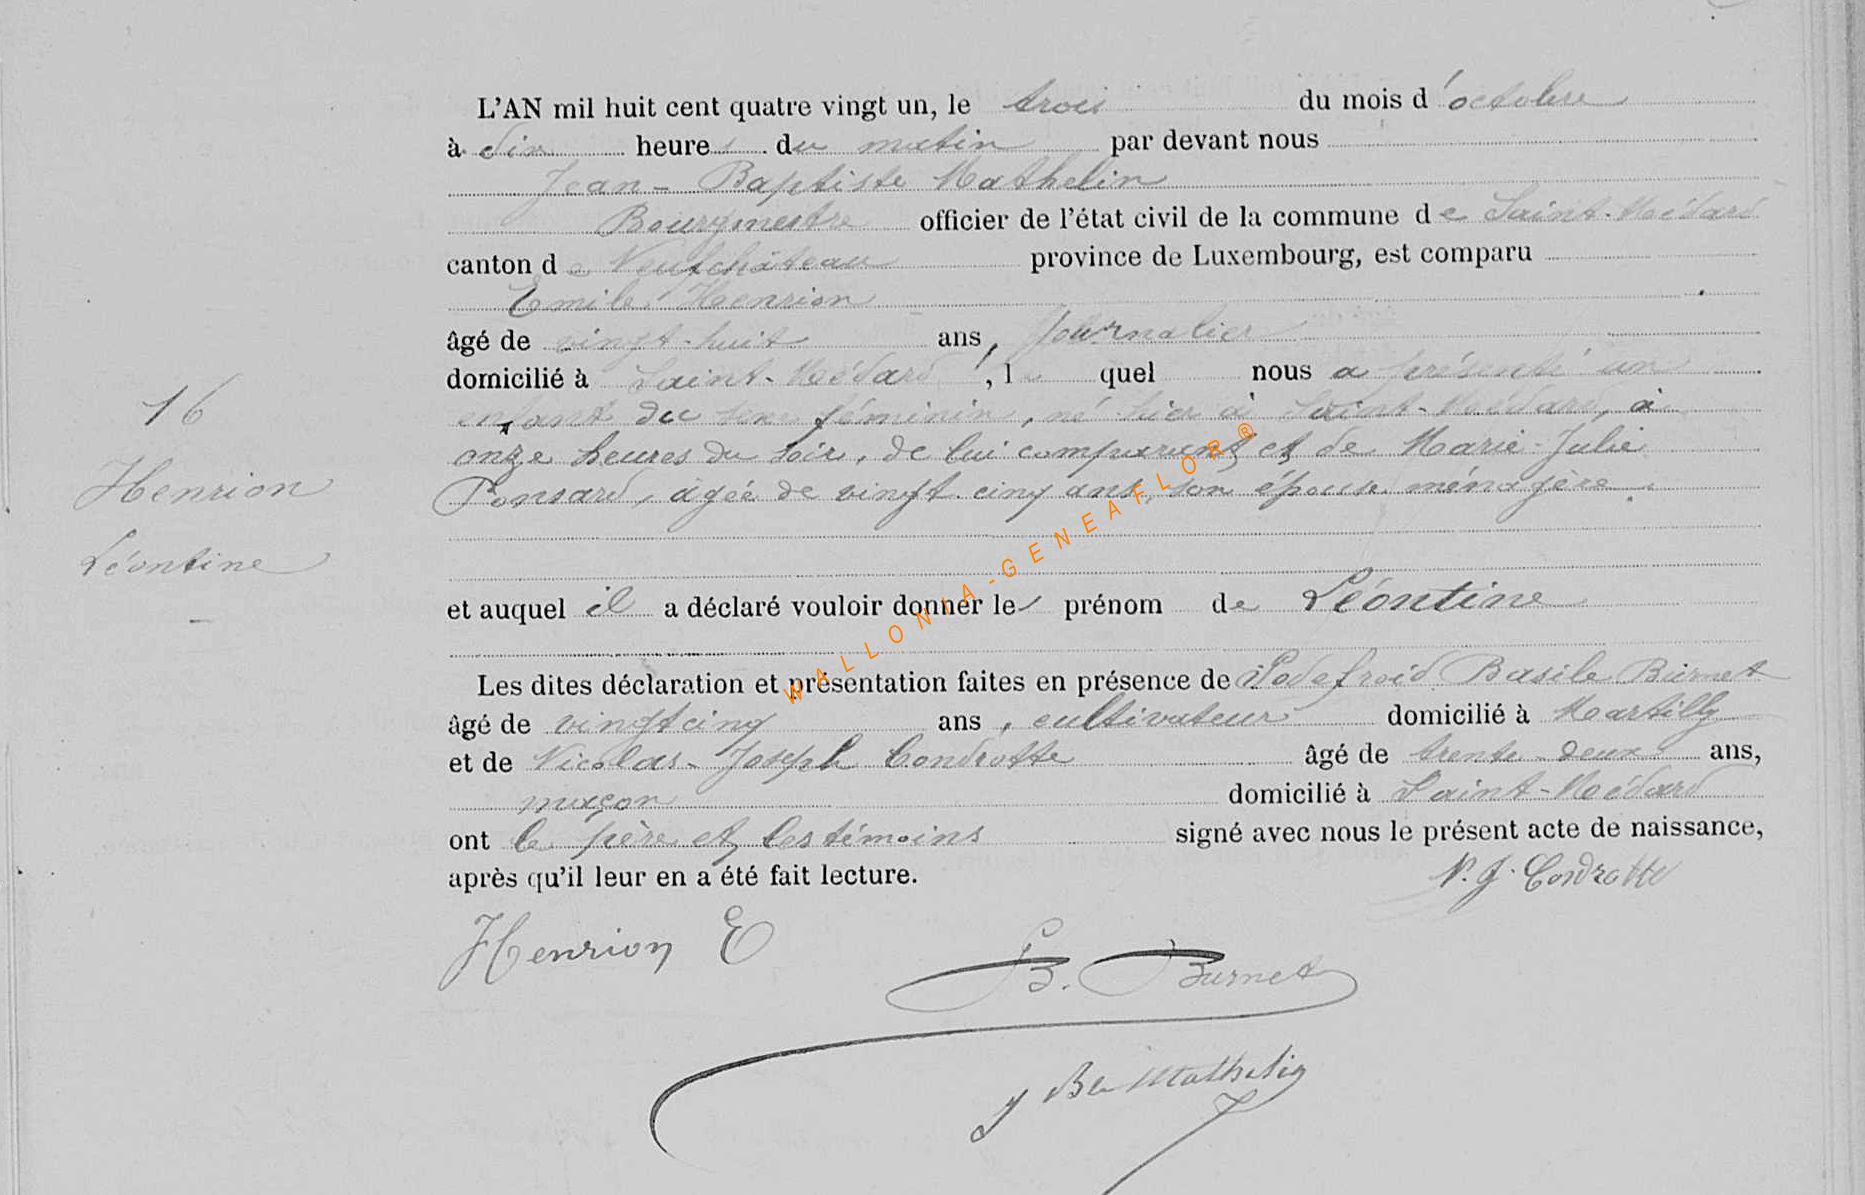 L'AN mil huit cent quatre vingt un, le trois du mois d'octobre
à dix heures du matin par devant nous
Jean-Baptiste Mathelin
Bourgmestre officier de l'état civil de la commune de Saint-Médard
canton de Neufchâteau province de Luxembourg, est comparu
Emile Henrion
âgé de vingt-huit ans, Journalier
domicilié à Saint-Médard, le quel nous a présenté un
enfant du sexe féminin, né hier à Saint-Médard, à
onze heures du soir, de lui comparant et de Marie-Julie
Ponsard, âgée de vingt-cinq ans, son épouse ménagère.
16
Henrion
Léontine
et auquel il a déclaré vouloir donner le prénom de Léontine
Les dites déclaration et présentation faites en présence de Godefroid Basile Burnet
âgé de vingt cinq ans, cultivateur domicilié à Martilly
et de Nicolas-Joseph Condrotte âgé de trente-deux ans,
maçon domicilié à Saint-Médard
ont le père et les témoins signé avec nous le présent acte de naissance,
après qu'il leur en a été fait lecture.
N. J. Condrotte
Henrion E
B. Burnet
J Bte Mathelin
WALLONIA-GENEAFLOR®